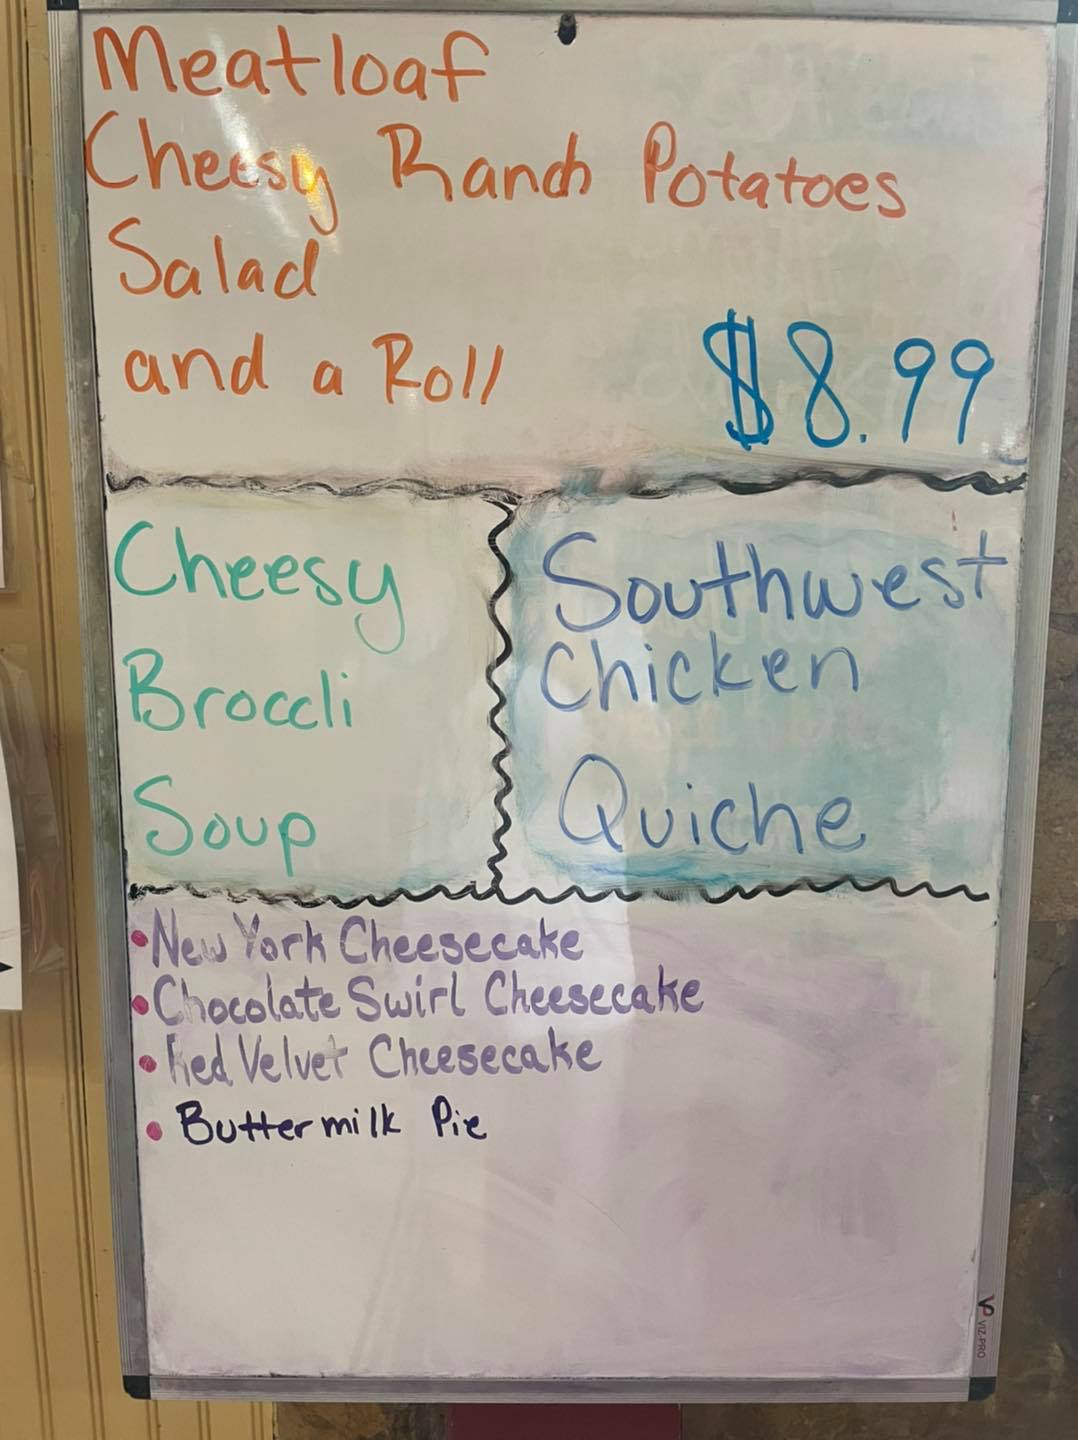 Meatloaf
Cheesy Ranch Potatoes
Salad
and a Roll
$8.99
Cheesy
Broccli
Soup
Southwest
Chicken
Quiche
• New York Cheesecake
• Chocolate Swirl Cheesecake
• Red Velvet Cheesecake
• Buttermilk Pie
VIZ-PRO